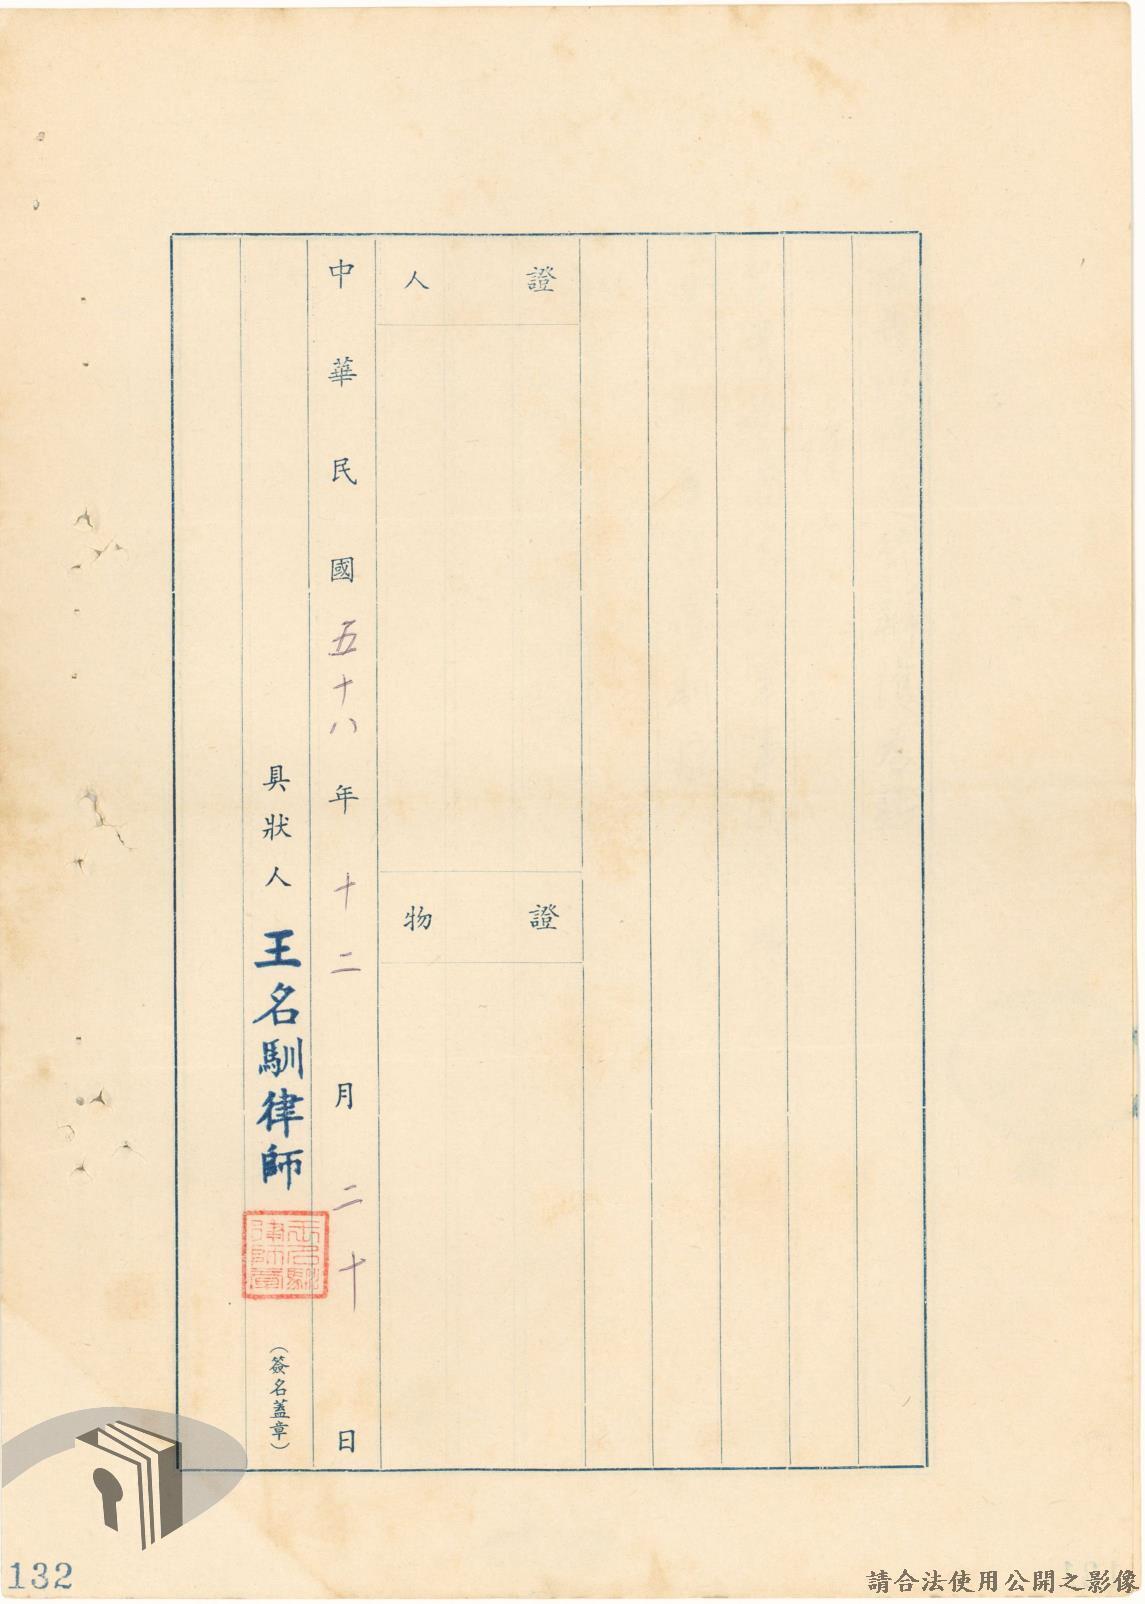 證人
證物
中華民國五十八年十二月二十日
具狀人 王名馴律師 (簽名蓋章)
王名馴律師章
132
請合法使用公開之影像